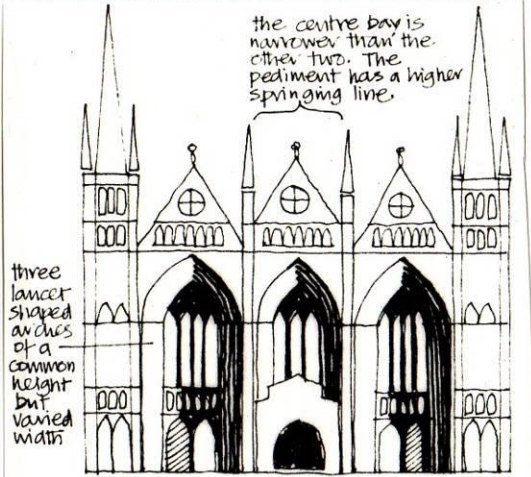 the centre bay is
narrower than the
other two. The
pediment has a higher
springing line.
three
lancet
shaped
arches
of a
common
height
but
varied
width